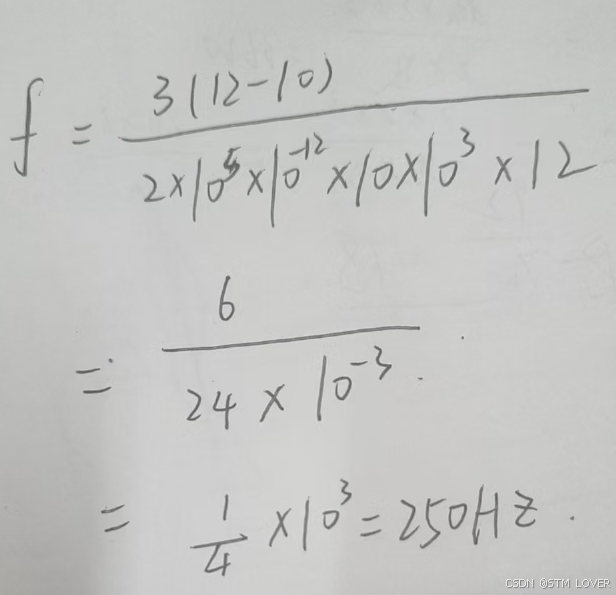 f = \frac{3(12-10)}{2×10^5×10^{-12}×10×10^3×12}
= \frac{6}{24×10^{-3}}.
= \frac{1}{4}×10^3=250Hz.
CSDN @STM LOVER